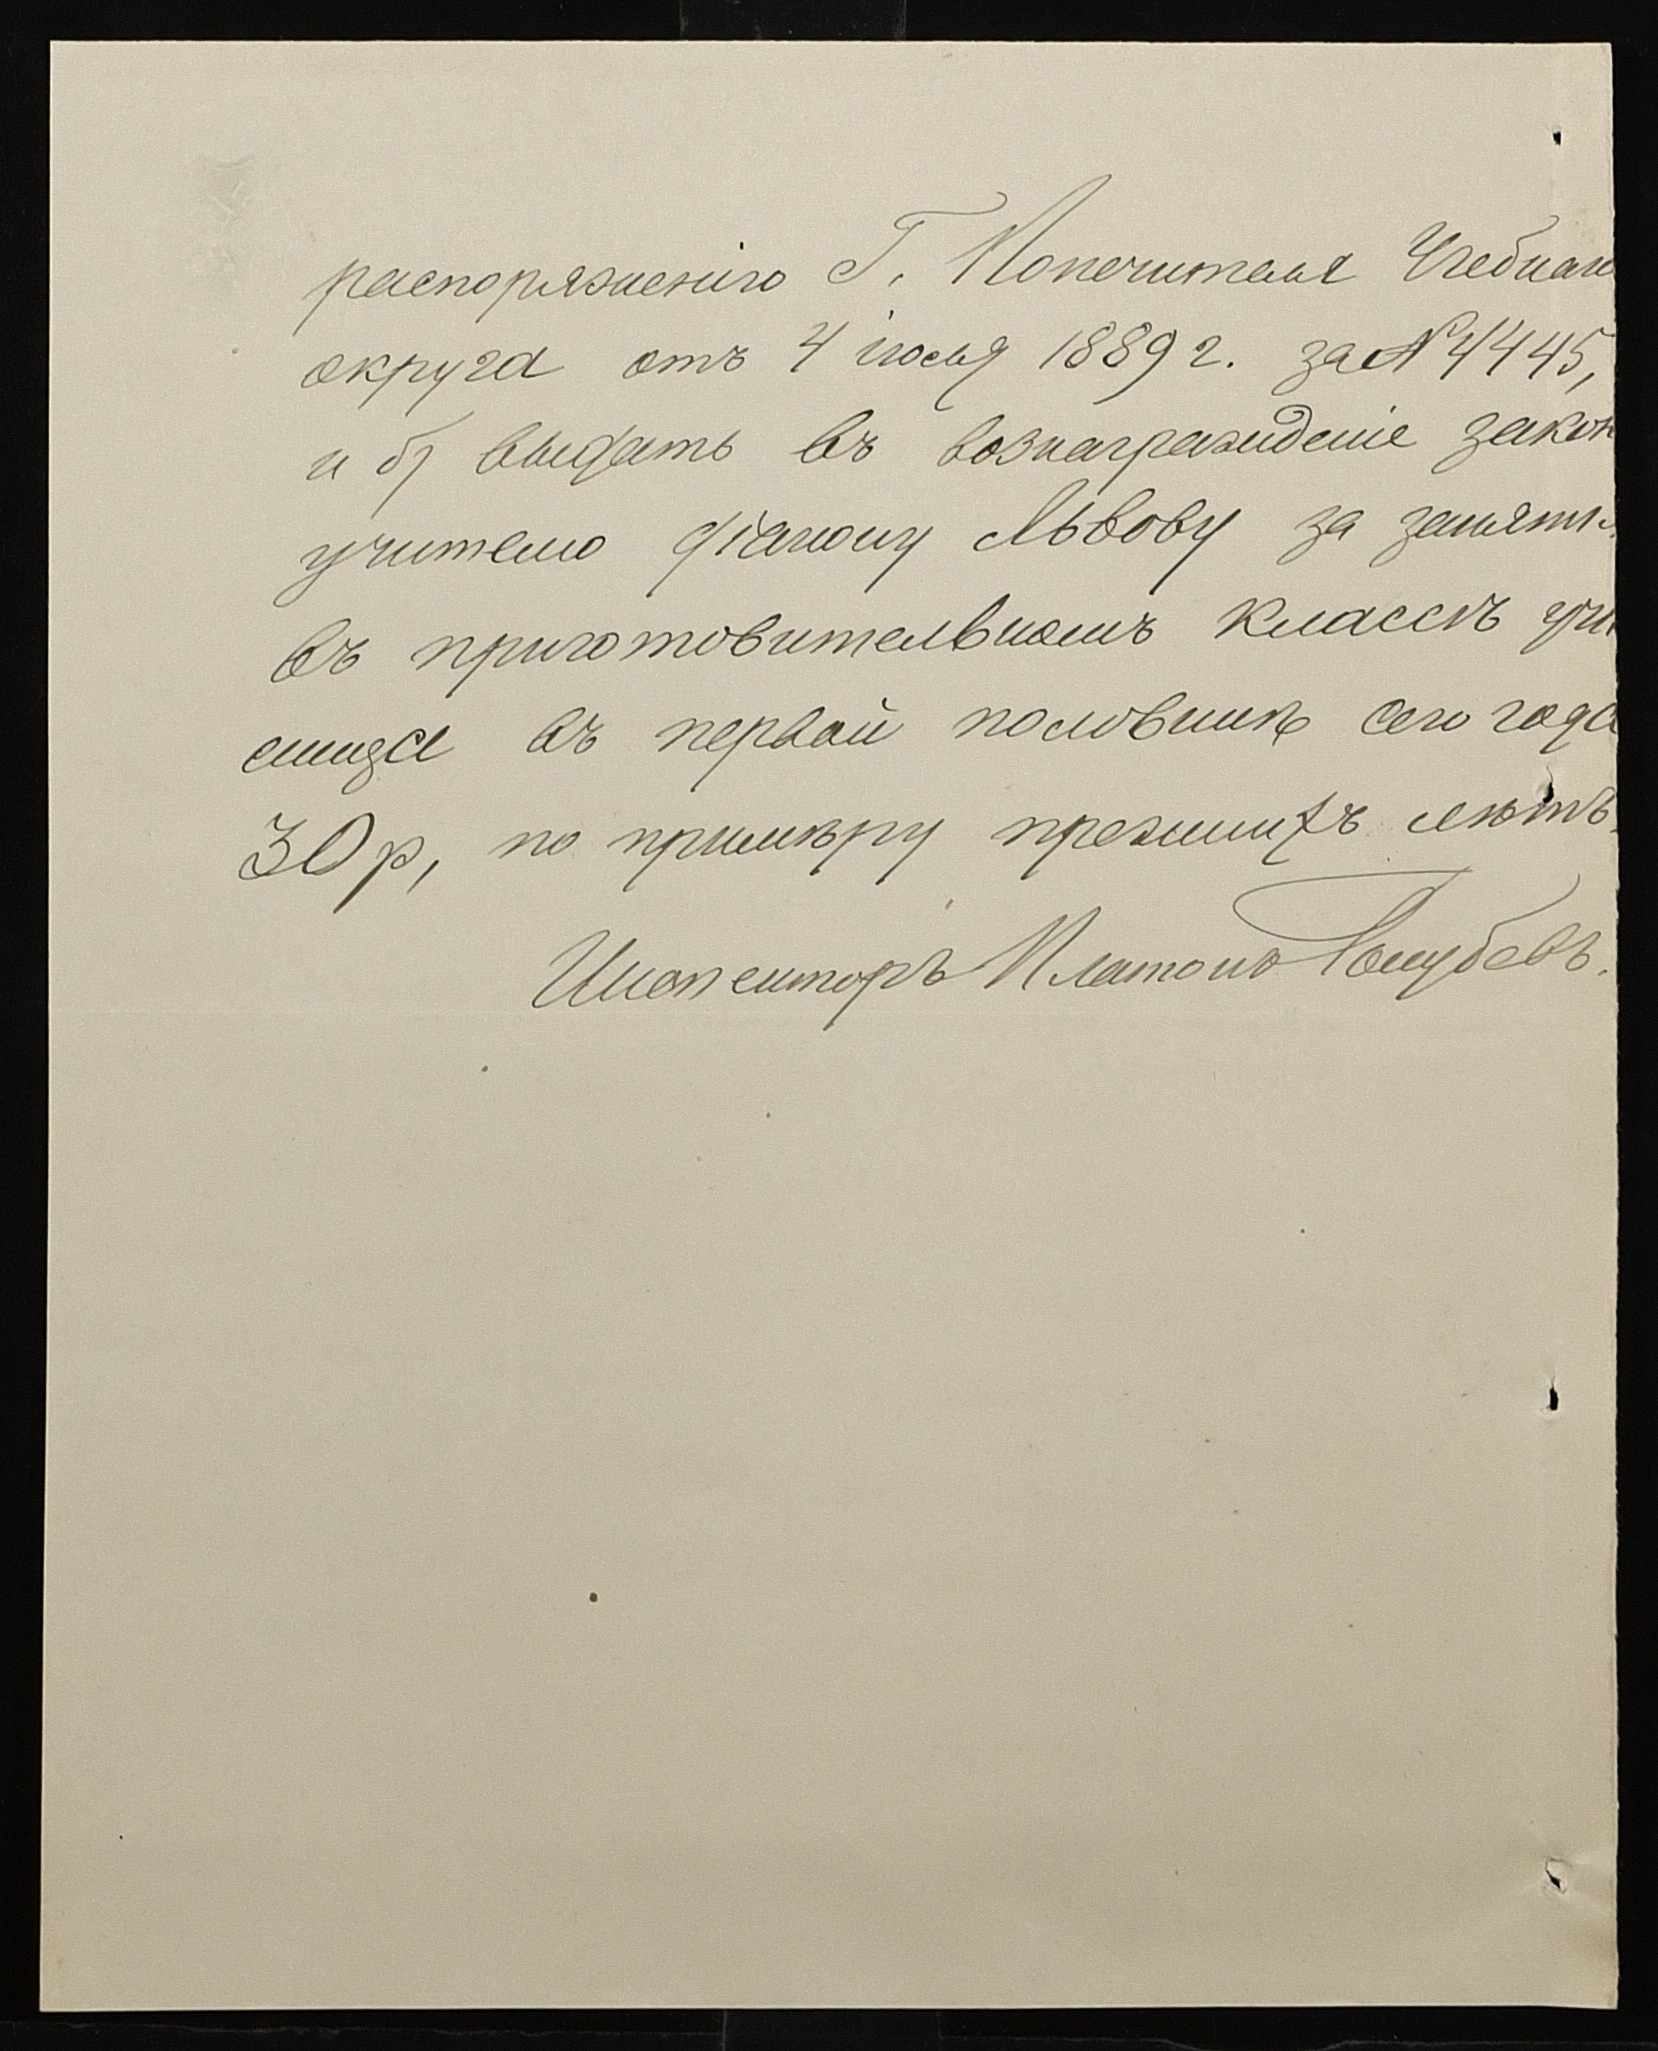 распоряженію Г. Попечителя Учебнаго
округа отъ 4 іюля 1889 г. за № 4445,
и б) выдать въ вознагражденіе закон
учителю діакону Львову за заняті
въ приготовительномъ классѣ учи
лища въ первой половинѣ сего года
30 р, по примѣру прежнихъ лѣтъ.
Инспекторъ Платонъ Голубевъ.